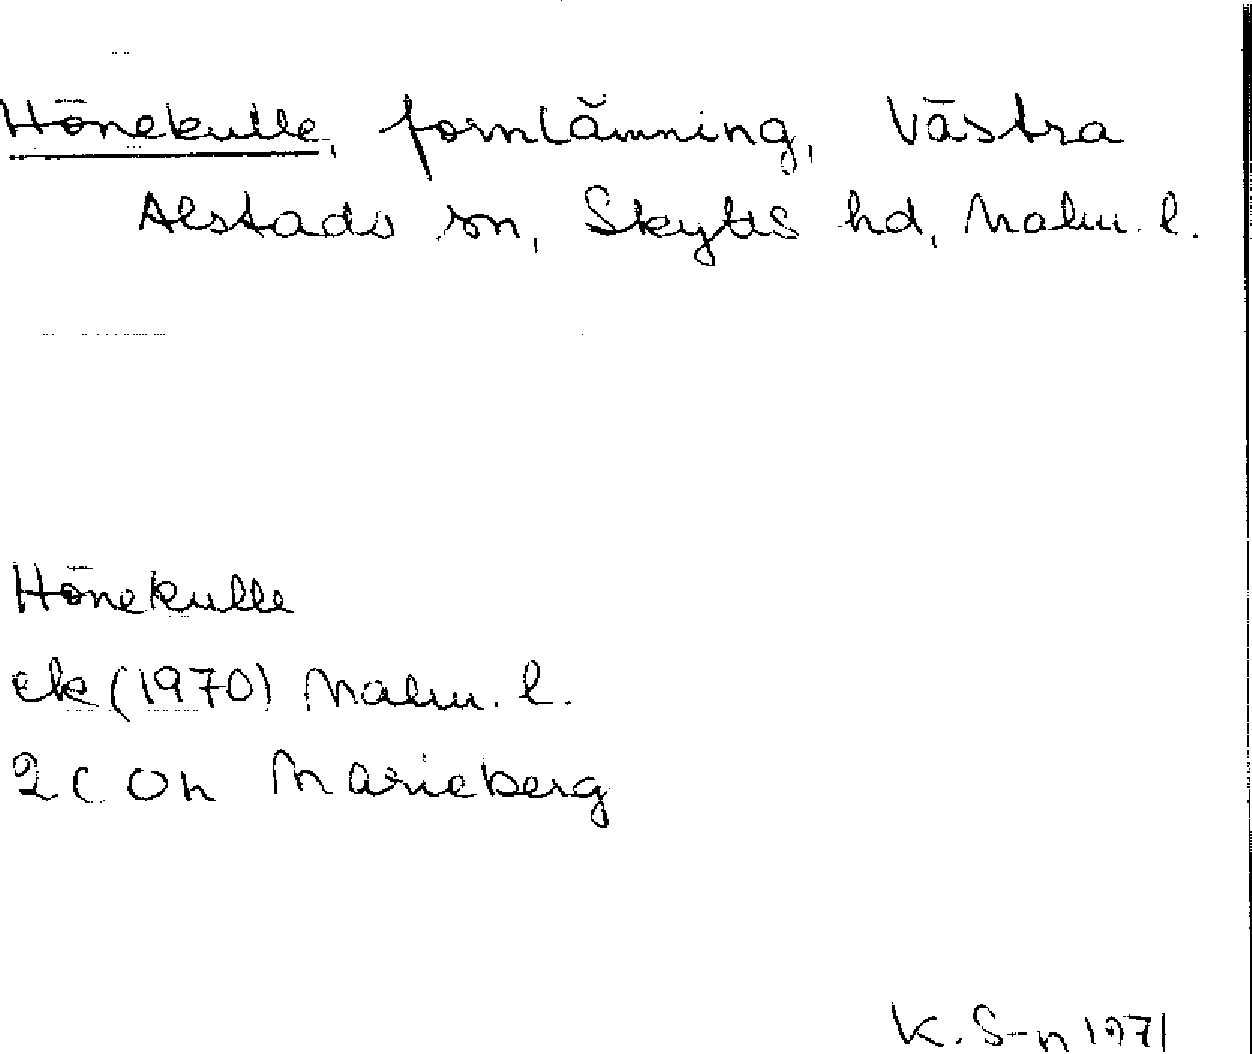 Hönekulle, fornlämning, Västra
Alstads sn, Skytts hd, Malm. l.
Hönekulle
ek (1970) Malm. l.
2 C On Marieberg
K. S-n 1971